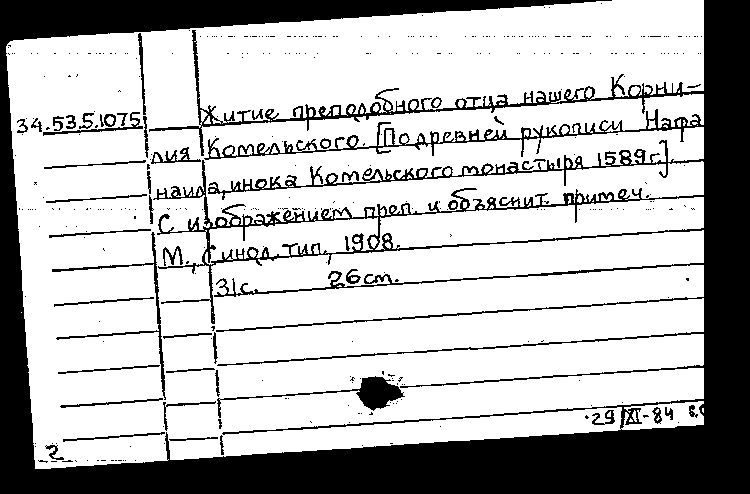 34.53.5.1075 Житие преподобного отца нашего Корни-
лия Комельского. [По древней рукописи Нафа
наила, инока Комельского монастыря 1589 г.].
С изображением преп. и объяснит. примеч.
М., Синод. тип., 1908.
31 с. 26 см.
29/XI-84
2